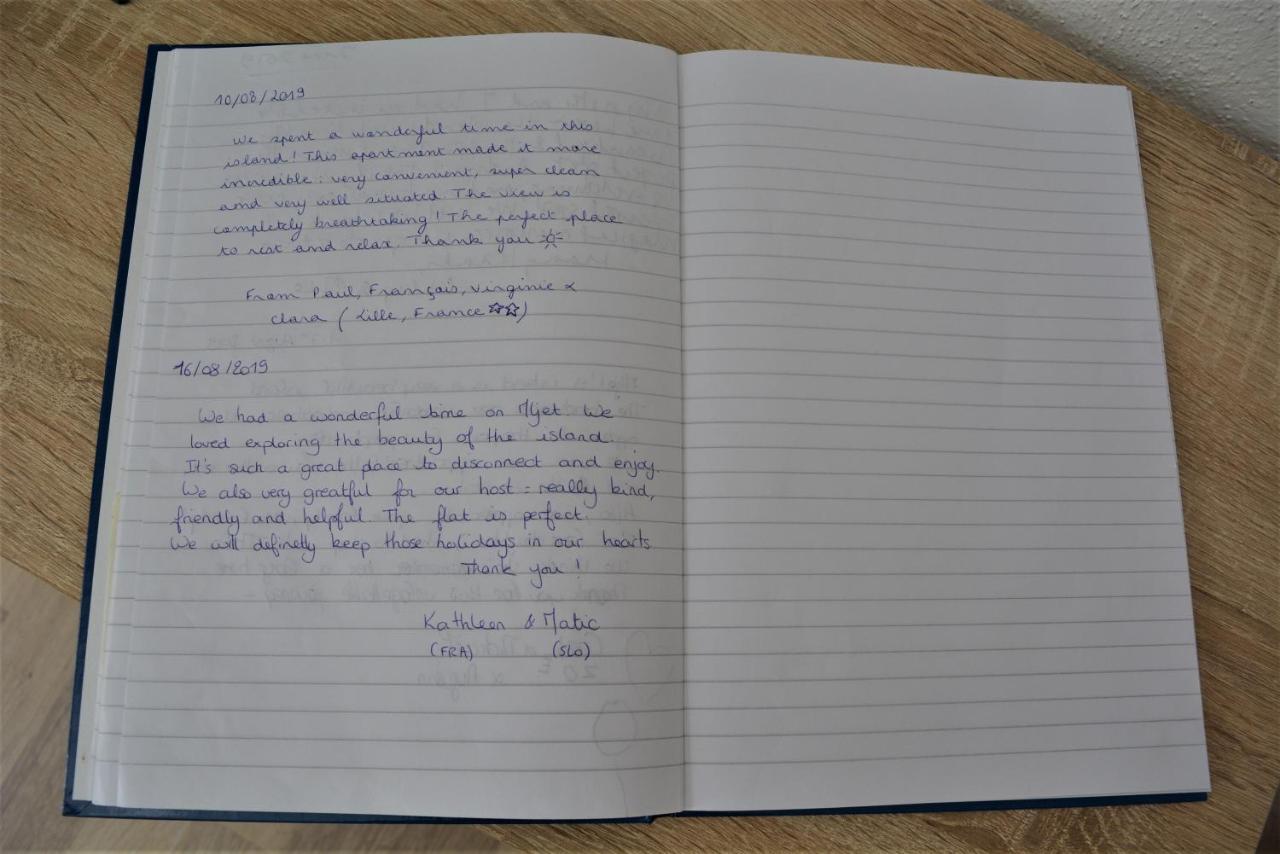 10/08/2019
We spent a wonderful time in this
island! This apartment made it more
incredible: very convenient, super clean
and very well situated The view is
completely breathtaking! The perfect place
to rest and relax. Thank you
From Paul, François, Virginie &
Clara (Lille, France ☆☆)
16/08/2019
We had a wonderful time on Mljet We
loved exploring the beauty of the island.
It's such a great place to disconnect and enjoy.
We also very greatful for our host: really kind,
friendly and helpful. The flat is perfect.
We will definetly keep those holidays in our hearts
Thank you!
Kathleen & Matic
(FRA) (SLO)